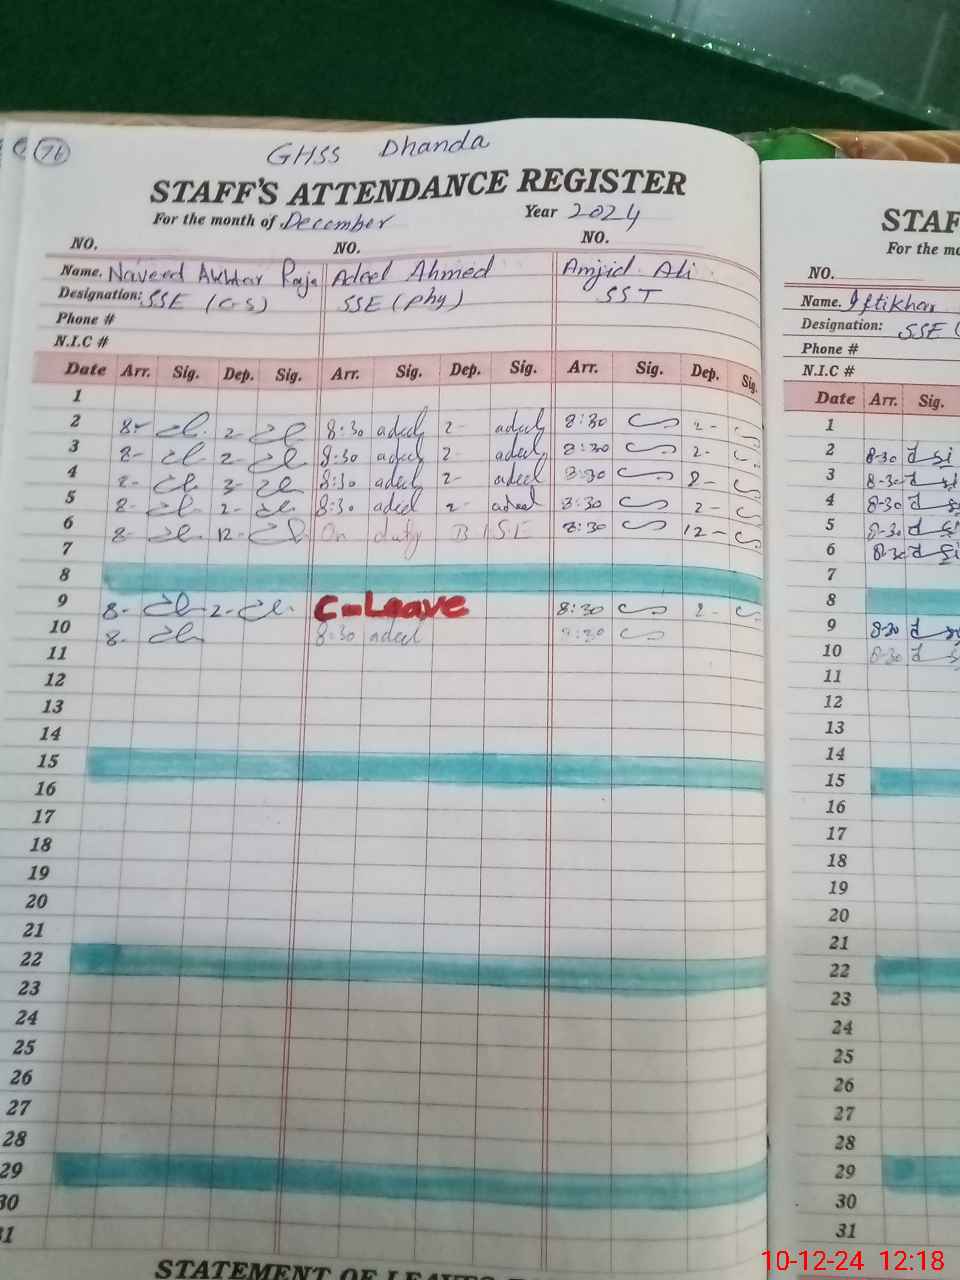 76
GHSS Dhanda
STAFF'S ATTENDANCE REGISTER
For the month of December Year 2024
NO. NO. NO.
Name. Naveed Akhtar Raja Adeel Ahmed Amjid Ali
Designation: SSE (G-S) SSE (Phy) SST
Phone #
N.I.C #
Date Arr. Sig. Dep. Sig. Arr. Sig. Dep. Sig. Arr. Sig. Dep. Sig.
1
2 8- 2- 8:30 adeel 2- adeel 8:30 2-
3 8- 2- 8:30 adeel 2- adeel 8:30 2-
4 8:30 adeel 2- adeel 8:30
5 8- 2- 8:30 adeel 2- adeel 8:30 2-
6 8- 12- On duty BISE 8:30 12-
7
8
9 8- 2- C-Leave 8:30 2-
10 8- 8:30 adeel 8:30
11
12
13
14
15
16
17
18
19
20
21
22
23
24
25
26
27
28
29
30
31
STATEMENT OF
STAF
For the mo
NO.
Name. Iftikhar
Designation: SSE (
Phone #
N.I.C #
Date Arr. Sig.
1
2 8-30
3 8-30
4 8-30
5 8-30
6 8-30
7
8
9 8-30
10 8-30
11
12
13
14
15
16
17
18
19
20
21
22
23
24
25
26
27
28
29
30
31
10-12-24 12:18